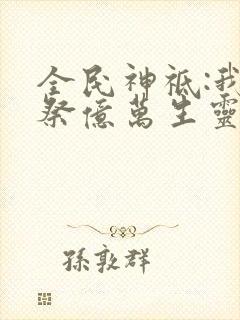 全民神祇:我
祭億萬生靈
孫敦群